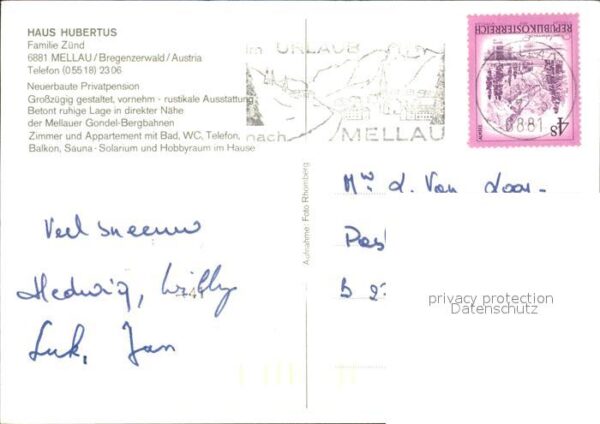 HAUS HUBERTUS
Familie Zünd
6881 MELLAU/Bregenzerwald/Austria
Telefon (05518) 2306
Neuerbaute Privatpension
Großzügig gestaltet, vornehm - rustikale Ausstattung
Betont ruhige Lage in direkter Nähe
der Mellauer Gondel-Bergbahnen
Zimmer und Appartement mit Bad, WC, Telefon,
Balkon, Sauna - Solarium und Hobbyraum im Hause
im URLAUB
nach MELLAU
REPUBLIK ÖSTERREICH
4S
6881
Aufnahme: Foto Rhomberg
Veel sneeuw
Hedwig, Willy
Luk, Jan
Mw L. Van Loos-
Pos
B 2
privacy protection
Datenschutz